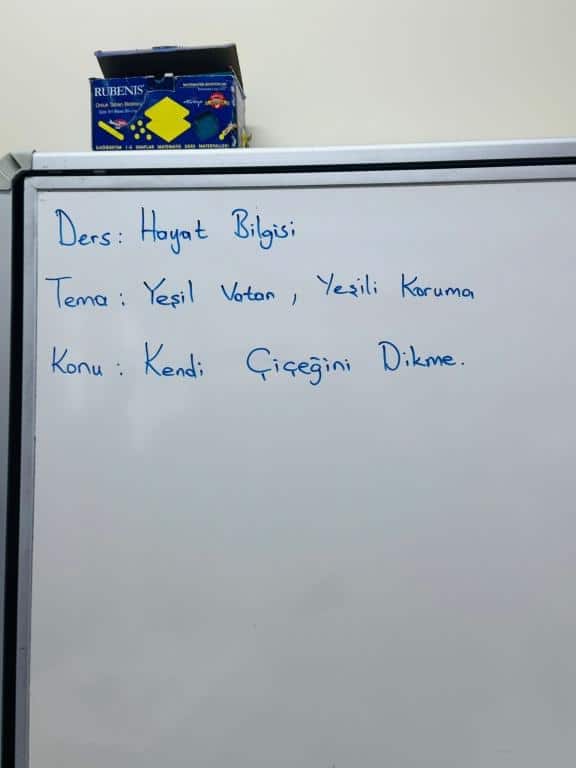 RUBENIS
Onluk Taban Blokları
Ders: Hayat Bilgisi
Tema: Yeşil Vatan, Yeşili Koruma
Konu: Kendi Çiçeğini Dikme.